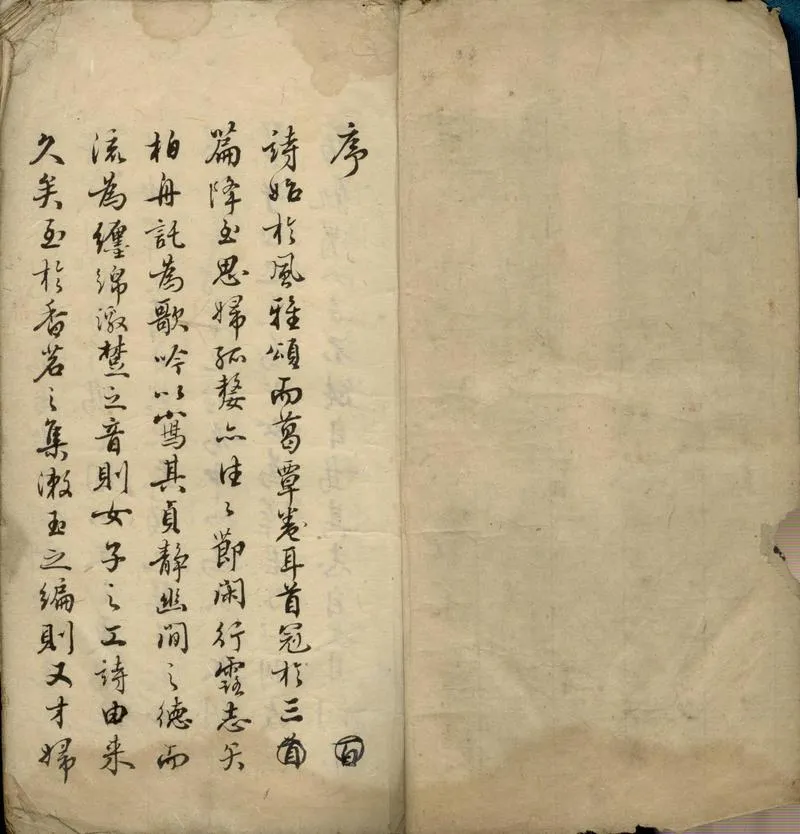 序
詩始於風雅頌而葛覃卷耳首冠於三首
百
篇降至思婦孤嫠亦往〻節閑行露志矢
柏舟託為歌吟以寫其貞靜幽閒之德而
流為纏綿激楚之音則女子之工詩由来
久矣至於香茗之集漱玉之編則又才婦